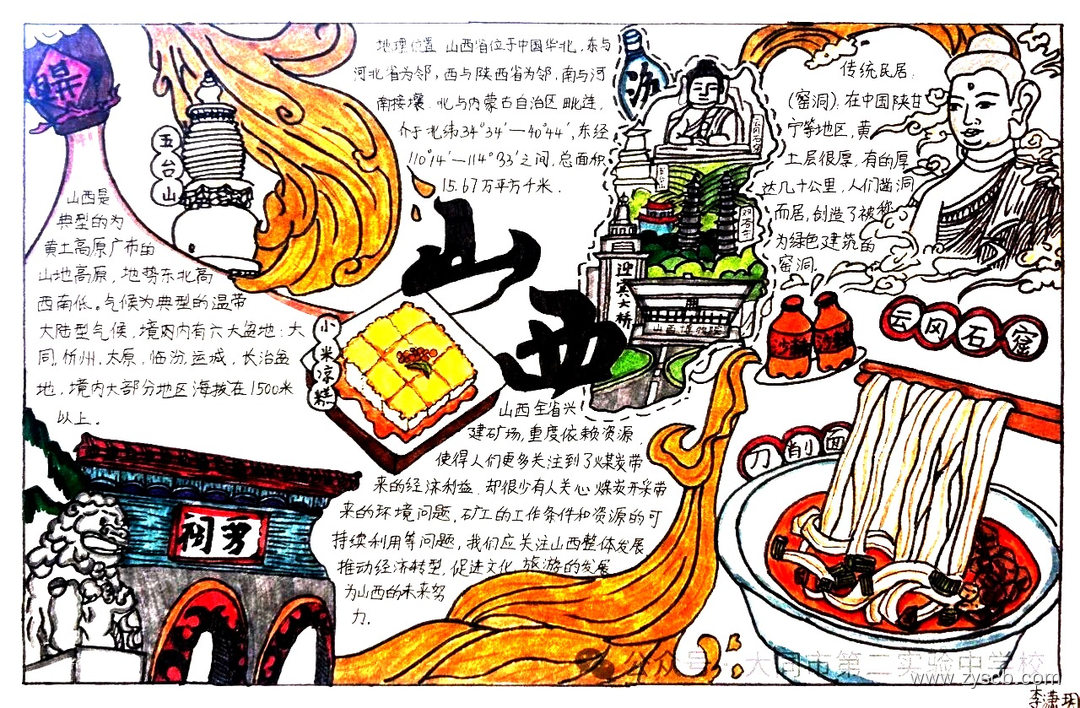 山西
地理位置 山西省位于中国华北,东与
河北省为邻,西与陕西省为邻,南与河
南接壤,北与内蒙古自治区毗连,
介于北纬34°34′—40°44′,东经
110°14′—114°33′之间,总面积
15.67万平方千米.
五台山
山西是
典型的为
黄土高原广布的
山地高原,地势东北高
西南低。气候为典型的温带
大陆型气候,境内有六大盆地:大
同,忻州,太原,临汾,运城,长治盆
地,境内大部分地区海拔在1500米
以上。
小米凉糕
游
迎宾大桥
山西博物院
传统民居:
(窑洞):在中国陕甘
宁等地区,黄
土层很厚,有的厚
达几十公里,人们凿洞
而居,创造了被称
为绿色建筑的
窑洞.
云冈石窟
沙棘
沙棘
刀削面
山西全省兴
建矿场,重度依赖资源,
使得人们更多关注到了煤炭带
来的经济利益,却很少有人关心煤炭开采带
来的环境问题,矿工的工作条件和资源的可
持续利用等问题,我们应关注山西整体发展
推动经济转型,促进文化 旅游的发展
为山西的未来努
力.
公众号·大同市第二实验中学校
www.zyscb.com